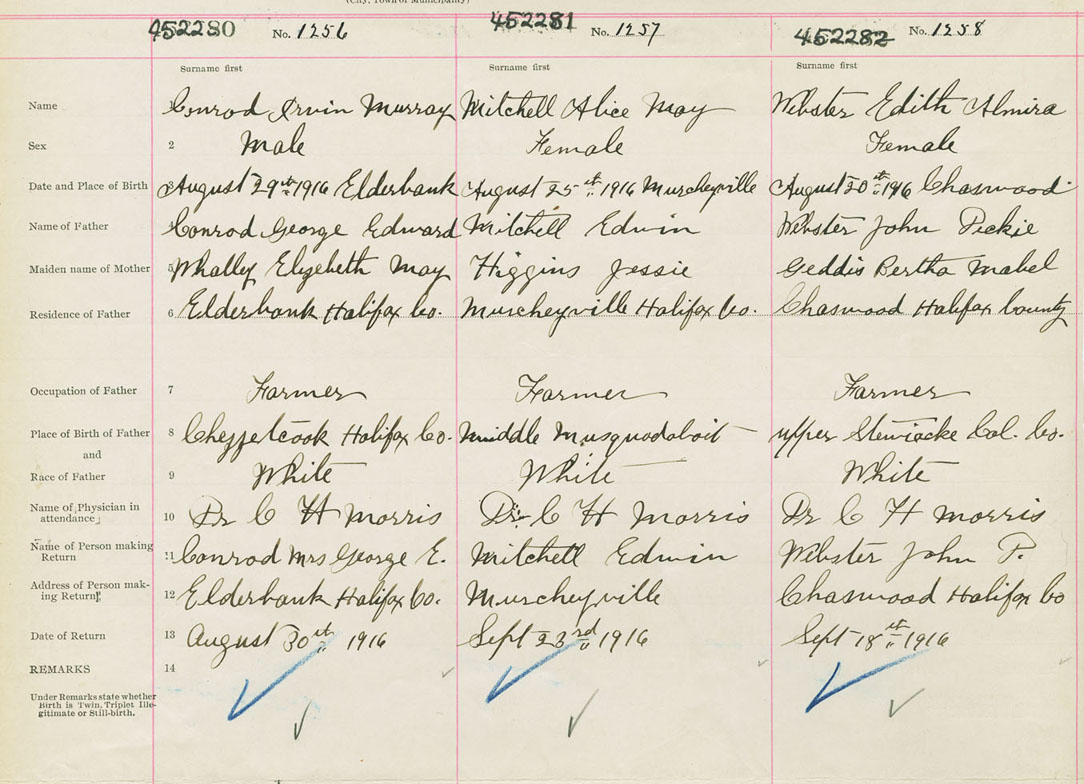 (City, Town or Municipality)
452280 No. 1256 452281 No. 1257 452282 No. 1258
Surname first Surname first Surname first
Name Conrod Ervin Murray Mitchell Alice May Webster Edith Almira
Sex 2 Male Female Female
Date and Place of Birth 3 August 29th 1916 Elderbank August 25th 1916 Murcheyville August 20th 1916 Chaswood
Name of Father Conrod George Edward Mitchell Edwin Webster John Pickie
Maiden name of Mother 5 Whalley Elizebeth May Higgins Jessie Geddis Bertha Mabel
Residence of Father 6 Elderbank Halifax Co. Murcheyville Halifax Co. Chaswood Halifax County
Occupation of Father 7 Farmer Farmer Farmer
Place of Birth of Father 8 Chezzetcook Halifax Co. Middle Musquodoboit Upper Stewiacke Col. Co.
and
Race of Father 9 White White White
Name of Physician in
attendance 10 Dr C H Morris Dr. C H Morris Dr C H Morris
Name of Person making
Return 11 Conrod Mrs George E. Mitchell Edwin Webster John P.
Address of Person mak-
ing Return 12 Elderbank Halifax Co. Murcheyville Chaswood Halifax Co
Date of Return 13 August 30th 1916 Sept 23rd 1916 Sept 18th 1916
REMARKS 14
Under Remarks state whether
Birth is Twin, Triplet Ille-
gitimate or Still-birth.